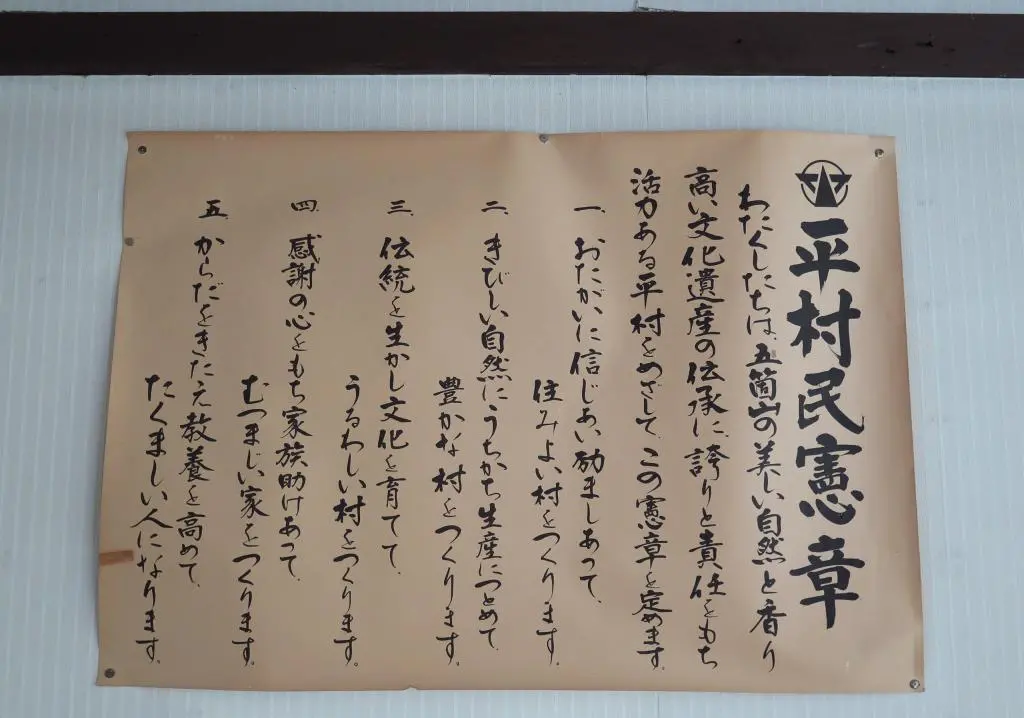 平村民憲章
わたくしたちは、五箇山の美しい自然と香り
高い文化遺産の伝承に、誇りと責任をもち
活力ある平村をめざして、この憲章を定めます。
一、おたがいに信じあい励ましあって、
住みよい村をつくります。
二、きびしい自然にうちかち生産につとめて
豊かな村をつくります。
三、伝統を生かし文化を育てて、
うるわしい村をつくります。
四、感謝の心をもち家族助けあって、
むつまじい家をつくります。
五、からだをきたえ教養を高めて、
たくましい人になります。